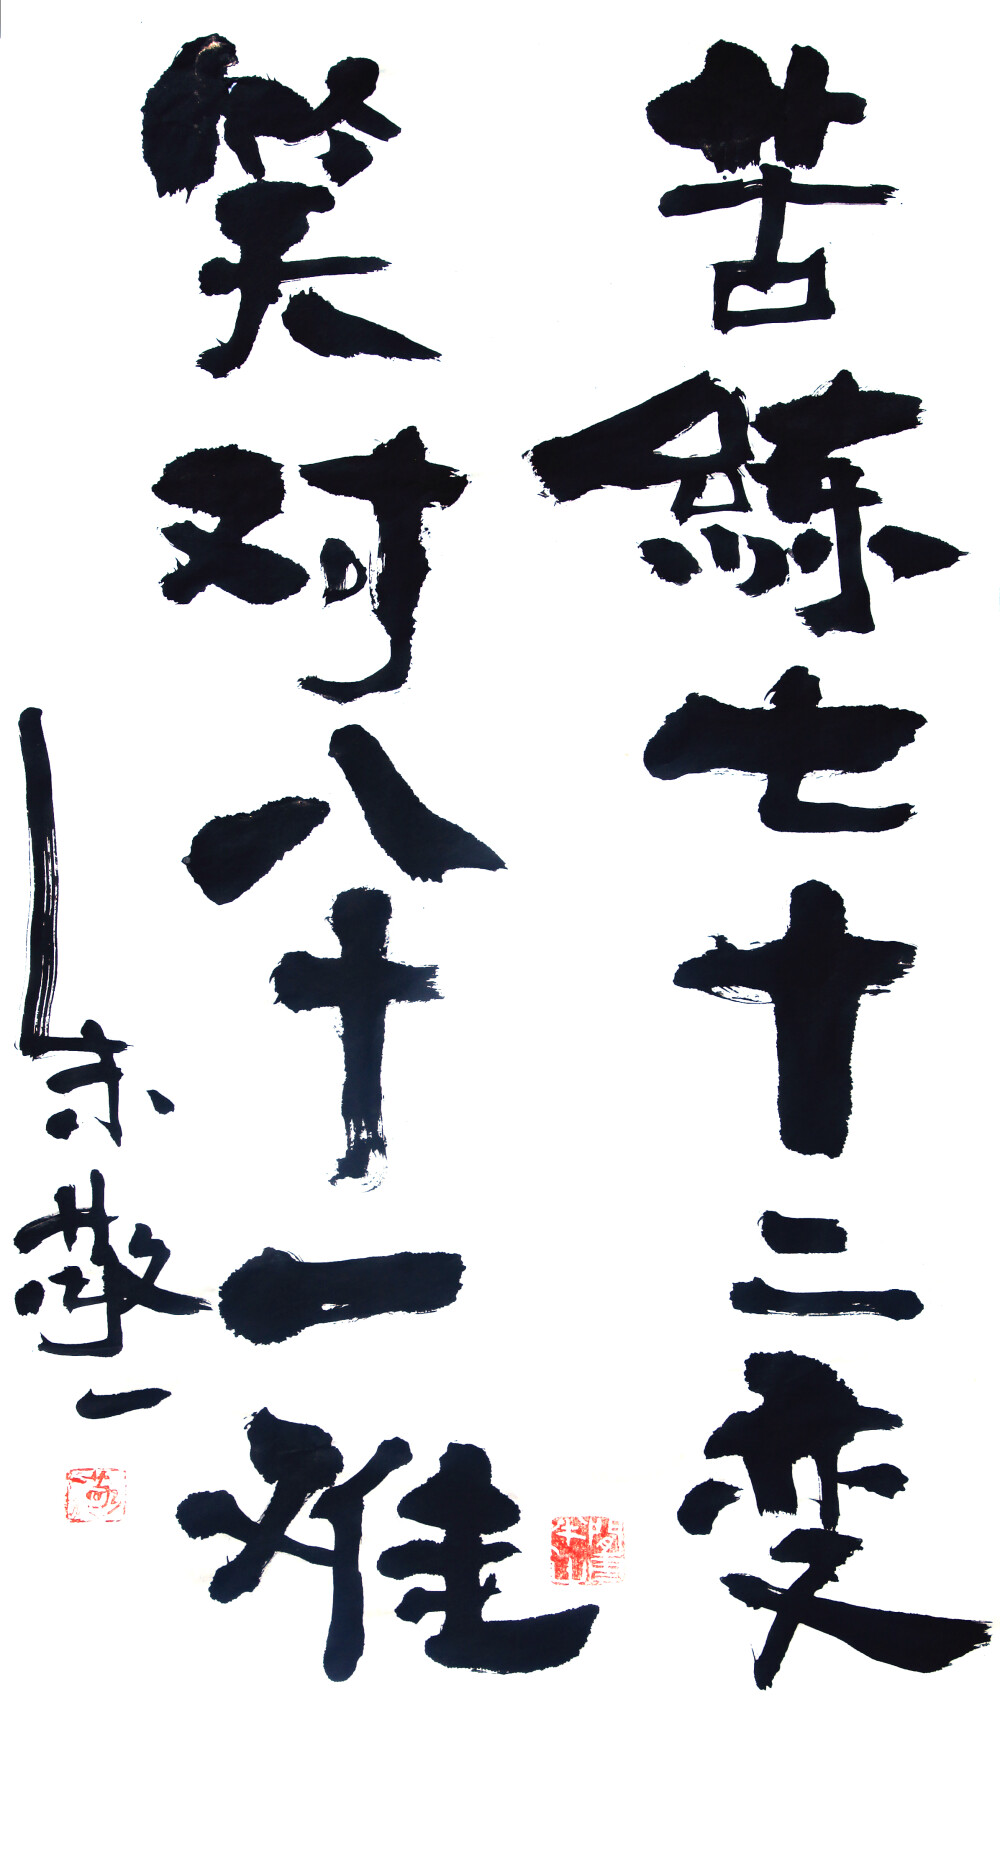 苦練七十二变
笑对八十一难
朱敬一